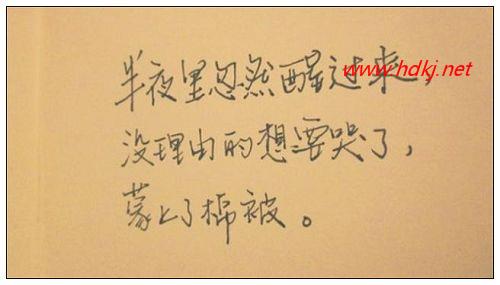 半夜里忽然醒过来，
www.hdkj.net
没理由的想要哭了，
蒙上了棉被。